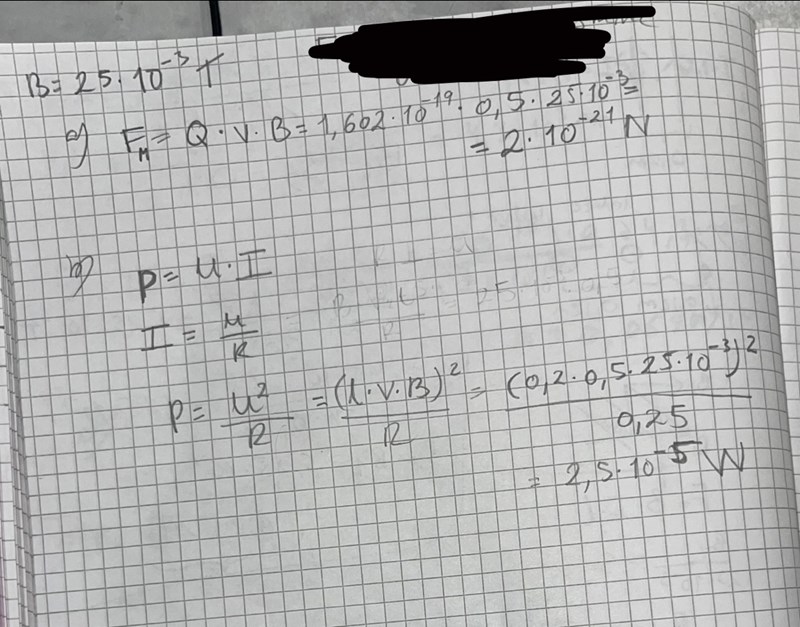 B = 25 · 10⁻³ T
a) F_M = Q · v · B = 1,602 · 10⁻¹⁹ · 0,5 · 25 · 10⁻³ =
= 2 · 10⁻²¹ N
b) P = U · I
I = U/R
P = U²/R = (l · v · B)²/R = (0,2 · 0,5 · 25 · 10⁻³)²/0,25
= 2,5 · 10⁻⁵ W